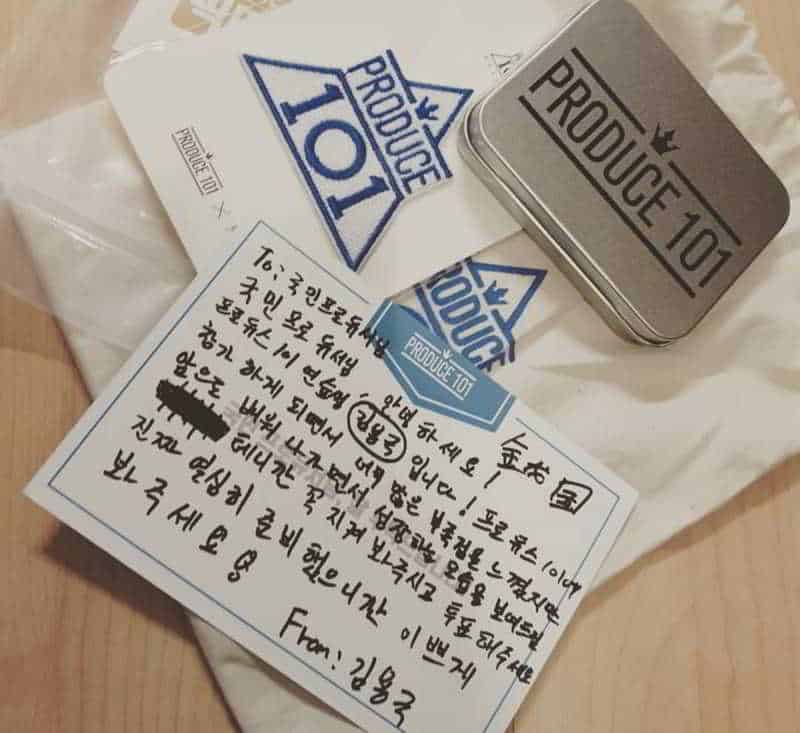 PRODUCE
101
PRODUCE 101
PRODUCE 101 ×
PRODUCE
PRODUCE 101
To: 국민프로듀서님
국민 프로 듀서님 안녕 하세요! 金龙国
프로듀스 101 연습생 김용국 입니다! 프로듀스 101에
참가 하게 되면서 너무 많은 부족점을 느꼈지만
앞으로 배워 나가면서 성장하는 모습을 보여드릴
테니간 꼭 지켜 봐주시고 투표해주세요
진짜 열심히 준비 했으니간 이쁘게
봐 주세요
From: 김용국